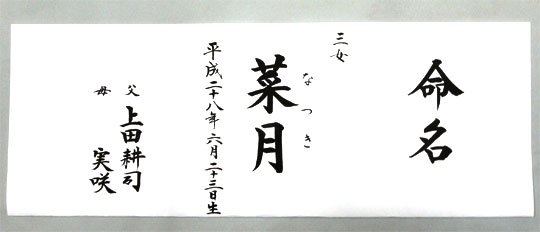 命名
三女
なつき
菜月
平成二十八年六月二十三日生
父 上田耕司
母 実咲